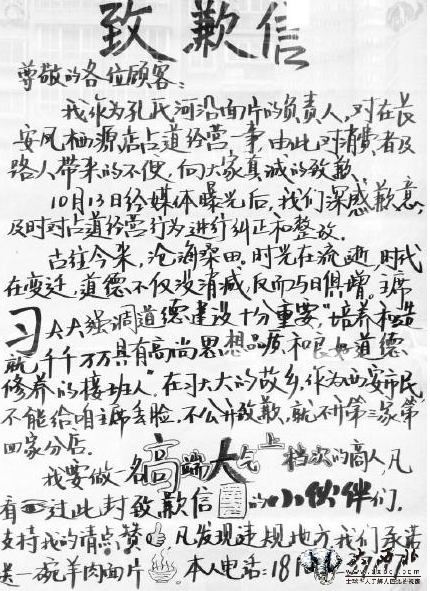 致歉信
尊敬的各位顾客:
我作为孔氏河沿面片的负责人,对在长
安凤栖源店占道经营一事,由此对消费者及
路人带来的不便,向大家真诚的致歉
10月13日经媒体曝光后,我们深感歉意,
及时对占道经营行为进行纠正和整改.
古往今来,沧海桑田.时光在流逝,时代
在变迁,道德不仅没消减,反而与日俱增.主席
习大大强调道德建设十分重要,"培养和造
就千千万万具有高尚思想品质和良好道德
修养的接班人".在习大大的故乡,作为西安市民,
不能给咱主席丢脸,不公开致歉,就不开第三家第
四家分店.
我要做一名高端大气上档次的商人,凡
看过此封致歉信的小伙伴们.
支持我的请点赞,凡发现违规地方,我们承诺
送一碗羊肉面片.本人电话:181